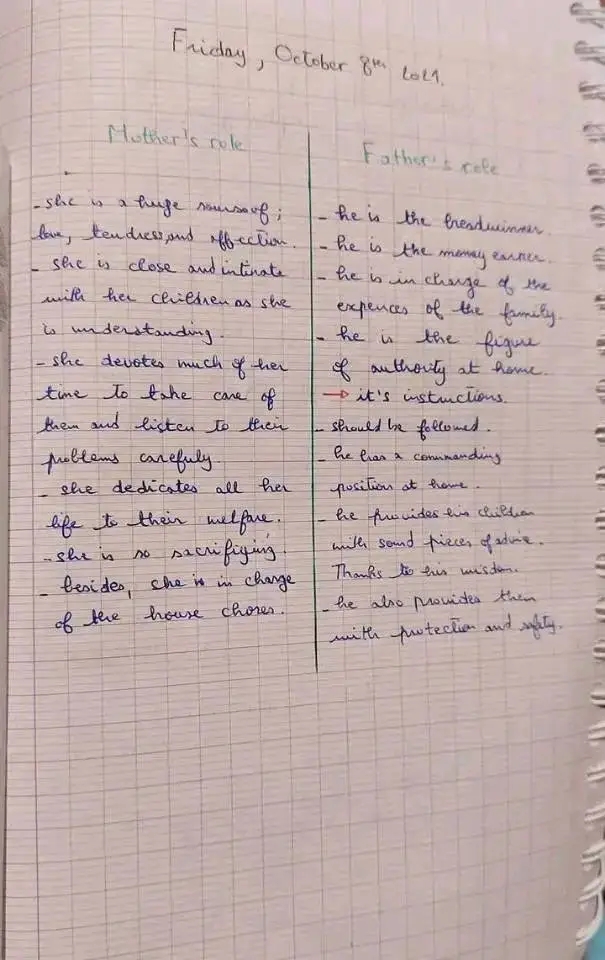 Friday, October 8th 2021.
Mother's role
- she is a huge sourse of ;
love, tendress, and affection.
- she is close and intinate
with her children as she
is understanding.
- she devotes much of her
time to take care of
them and listen to their
problems carefuly
- she dedicates all her
life to their welfare.
- she is so sacrifiying.
- besides, she is in charge
of the house chores.
Father's role
- he is the breadwinner.
- he is the money earner.
- he is in charge of the
expences of the family.
- he is the figure
of authority at home.
→ it's instructions.
- should be followed.
- he has a commanding
position at home.
- he provides his children
with sound pieces of advice.
Thanks to his wisdom.
- he also provides them
with protection and safety.